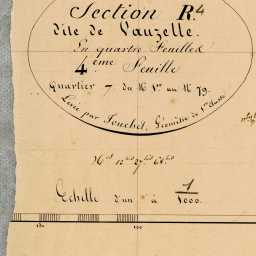 Section R.4
dite de Lauzelle.
En quatre Feuilles
4ème Feuille
Quartier 7 du N° 1er au N° 79.
Levée par Fouchet, Géomètre de 1re classe
Echelle d'un à 1/1000.
150
100